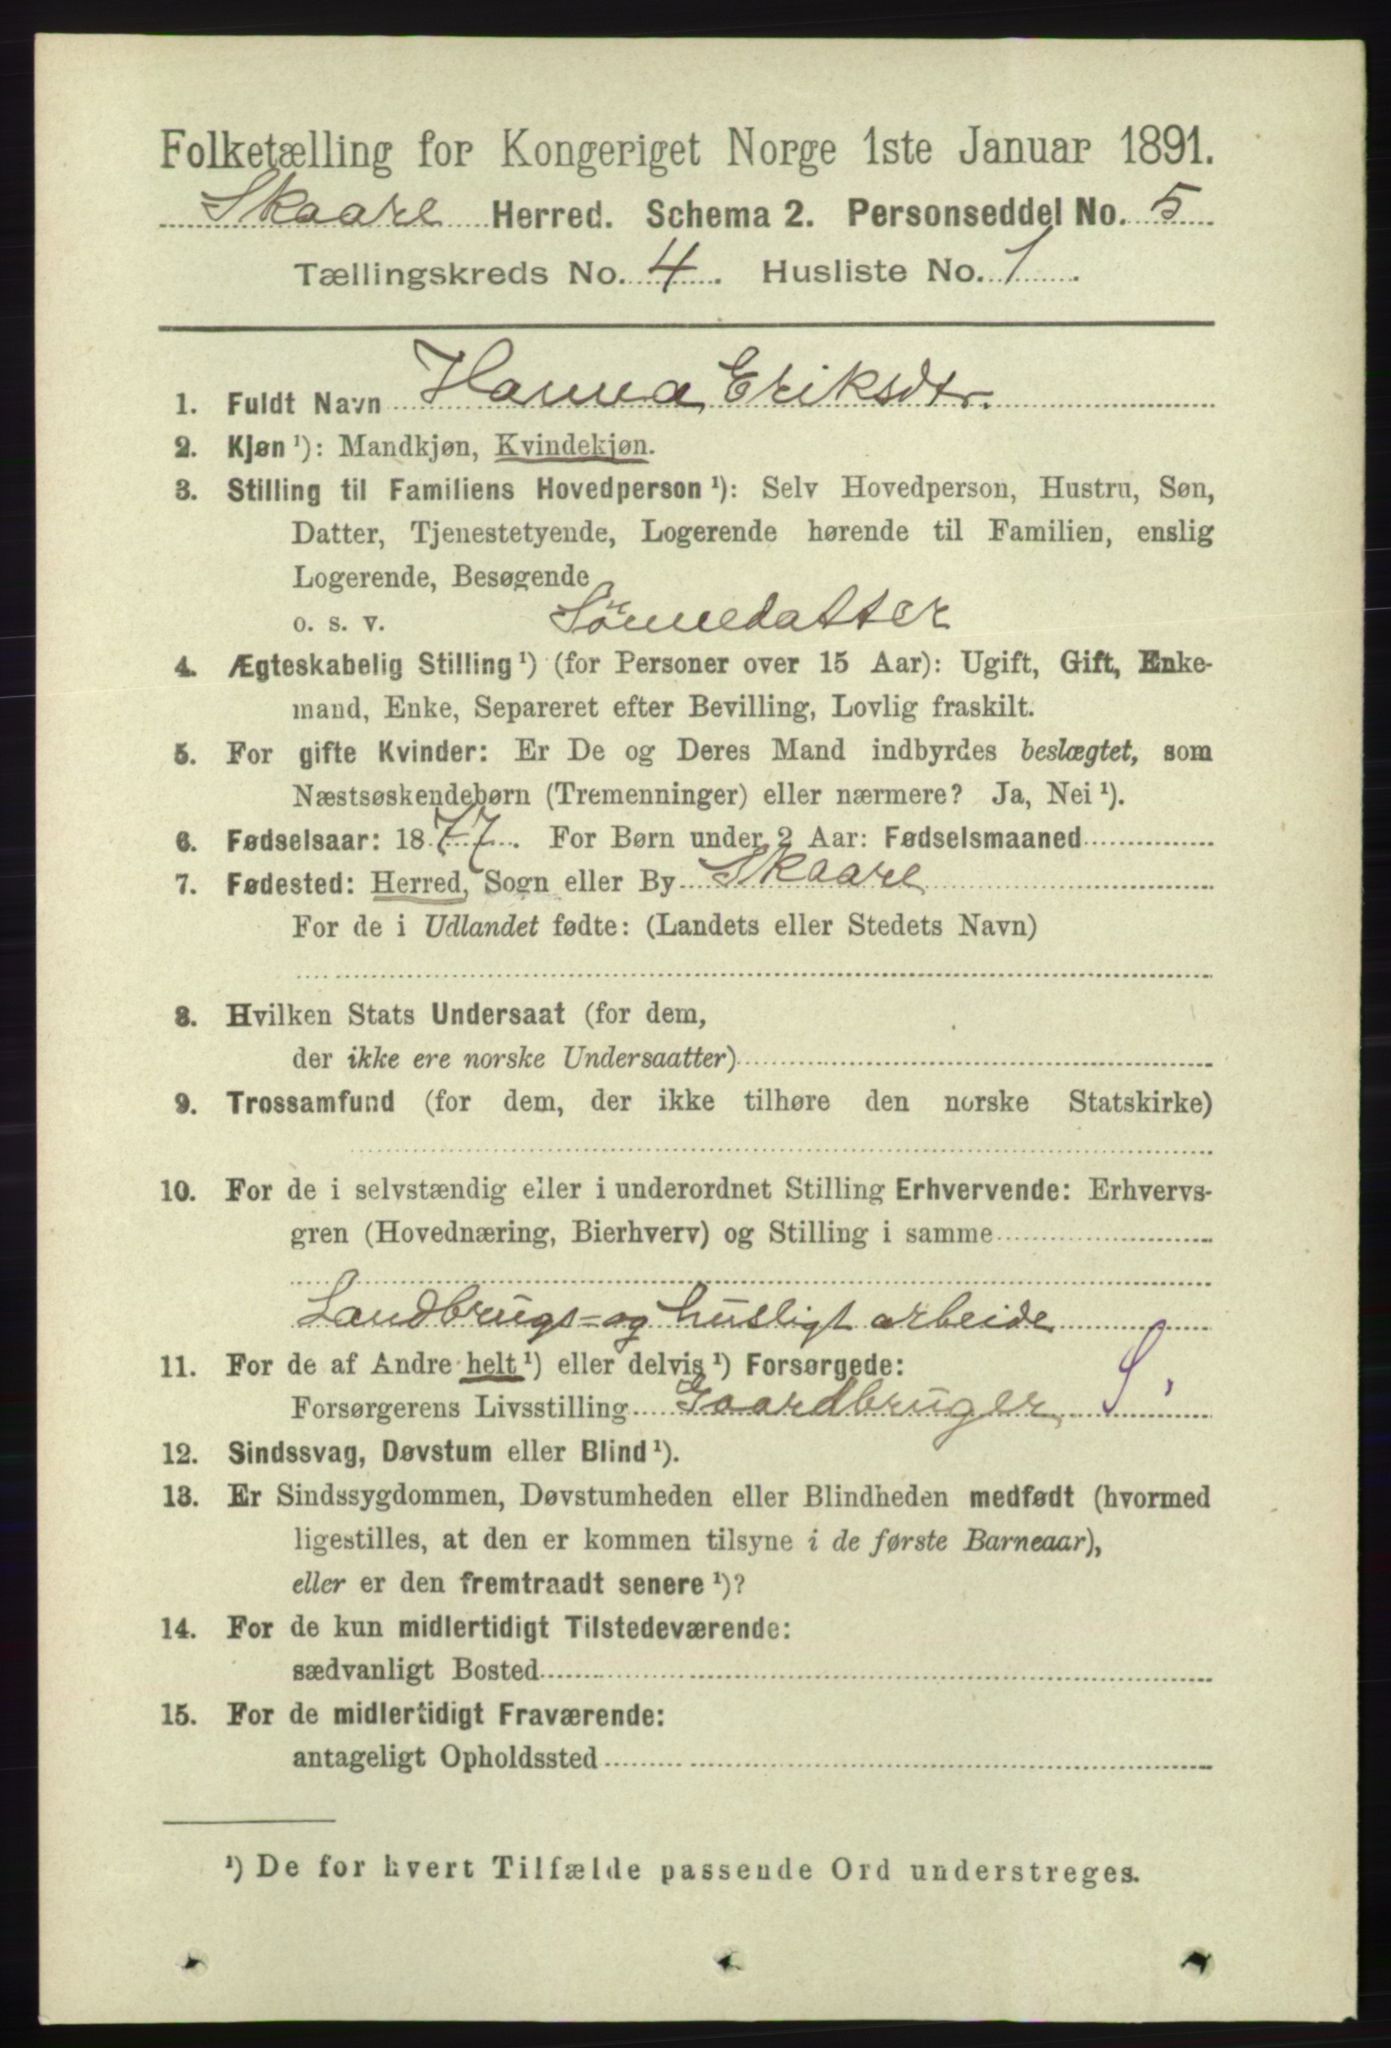 Folketælling for Kongeriget Norge 1ste Januar 1891.
Skaare Herred. Schema 2. Personseddel No. 5
Tællingskreds No. 4. Husliste No. 1.
1. Fuldt Navn Hanna Eriksdtr.
2. Kjøn ¹): Mandkjøn, Kvindekjøn.
3. Stilling til Familiens Hovedperson ¹): Selv Hovedperson, Hustru, Søn,
Datter, Tjenestetyende, Logerende hørende til Familien, enslig
Logerende, Besøgende
o. s. v. Sønnedatter
4. Ægteskabelig Stilling ¹) (for Personer over 15 Aar): Ugift, Gift, Enke-
mand, Enke, Separeret efter Bevilling, Lovlig fraskilt.
5. For gifte Kvinder: Er De og Deres Mand indbyrdes beslægtet, som
Næstsøskendebørn (Tremenninger) eller nærmere? Ja, Nei ¹).
6. Fødselsaar: 1877. For Børn under 2 Aar: Fødselsmaaned
7. Fødested: Herred, Sogn eller By Skaare
For de i Udlandet fødte: (Landets eller Stedets Navn)
8. Hvilken Stats Undersaat (for dem,
der ikke ere norske Undersaatter)
9. Trossamfund (for dem, der ikke tilhøre den norske Statskirke)
10. For de i selvstændig eller i underordnet Stilling Erhvervende: Erhvervs-
gren (Hovednæring, Bierhverv) og Stilling i samme
Landbrugs- og husligt arbeide
11. For de af Andre helt ¹) eller delvis ¹) Forsørgede:
Forsørgerens Livsstilling Gaardbruger S.
12. Sindssvag, Døvstum eller Blind ¹).
13. Er Sindssygdommen, Døvstumheden eller Blindheden medfødt (hvormed
ligestilles, at den er kommen tilsyne i de første Barneaar),
eller er den fremtraadt senere ¹)?
14. For de kun midlertidigt Tilstedeværende:
sædvanligt Bosted
15. For de midlertidigt Fraværende:
antageligt Opholdssted
¹) De for hvert Tilfælde passende Ord understreges.